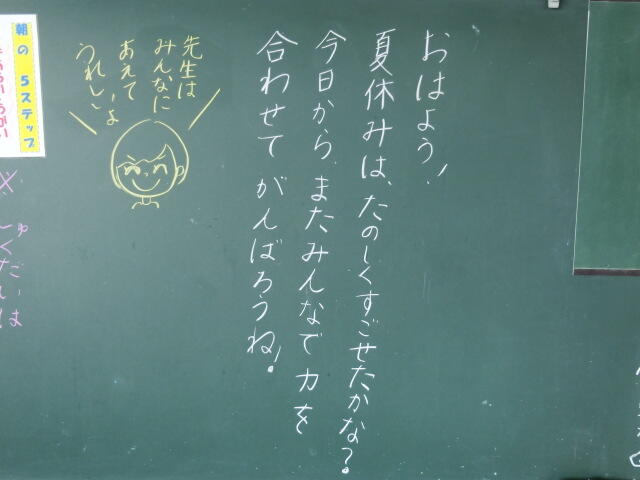 おはよう!
夏休みは、たのしくすごせたかな?
今日から、またみんなで力を
合わせてがんばろうね!。
先生は
みんなに
あえて
うれしいよ
朝の5ステップ